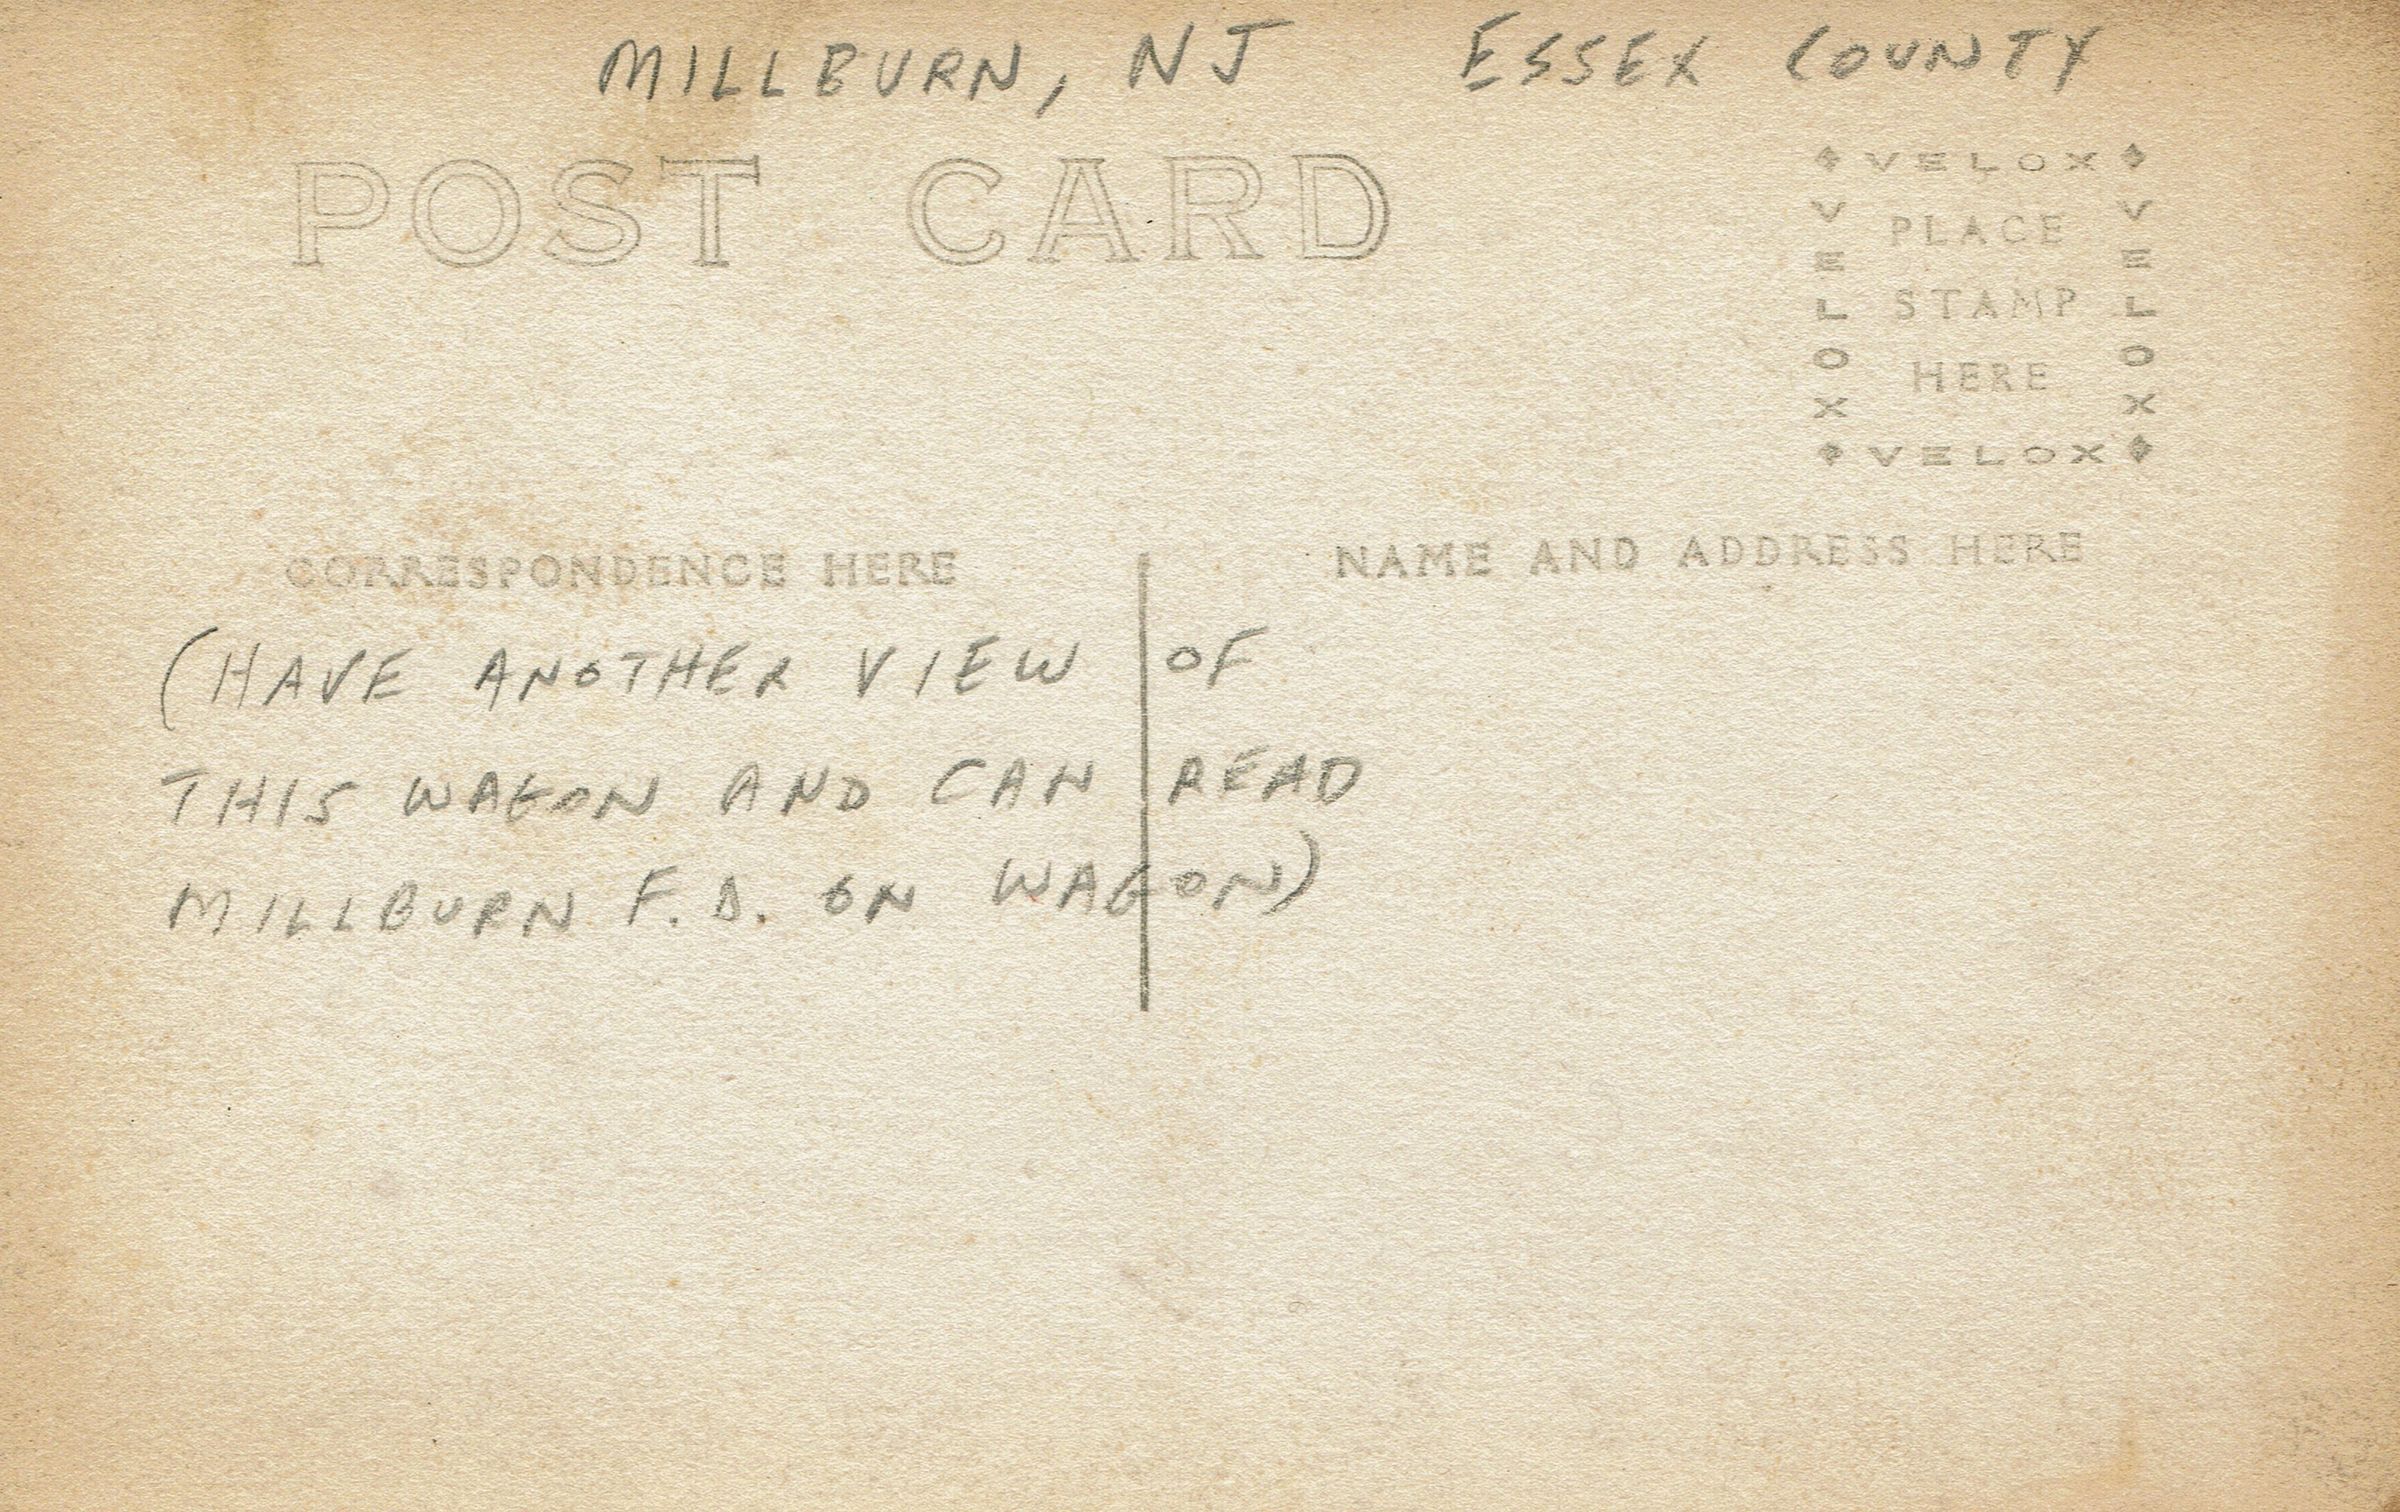 MILLBURN, NJ ESSEX COUNTY
POST CARD
VELOX
VELOX
VELOX
PLACE
STAMP
HERE
VELOX
CORRESPONDENCE HERE
NAME AND ADDRESS HERE
(HAVE ANOTHER VIEW OF
THIS WAGON AND CAN READ
MILLBURN F.D. ON WAGON)